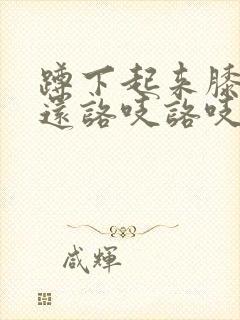 蹲下起来膝
还咯吱咯吱
咸辉